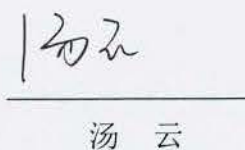 汤云
汤 云